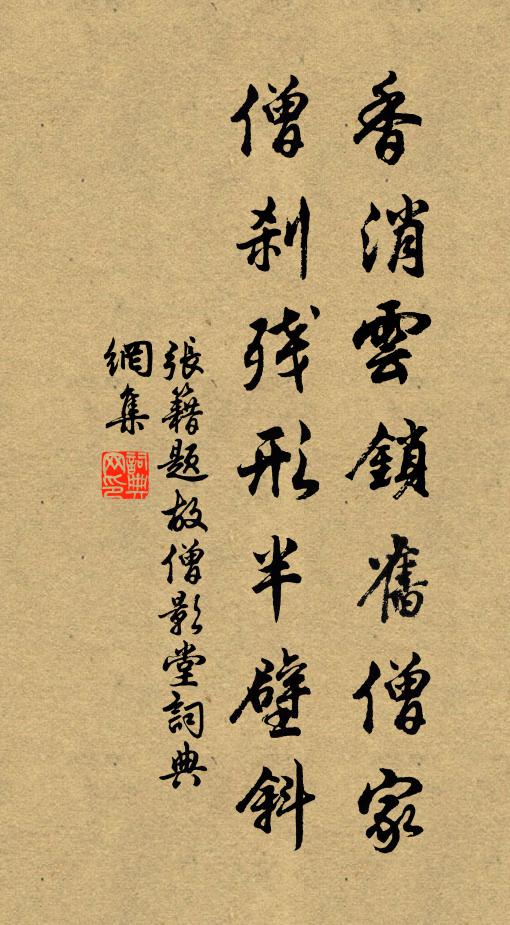 香消雲鎖舊僧家
僧剎殘形半壁斜
張籍題故僧影堂詞典
網集
詞典
网印